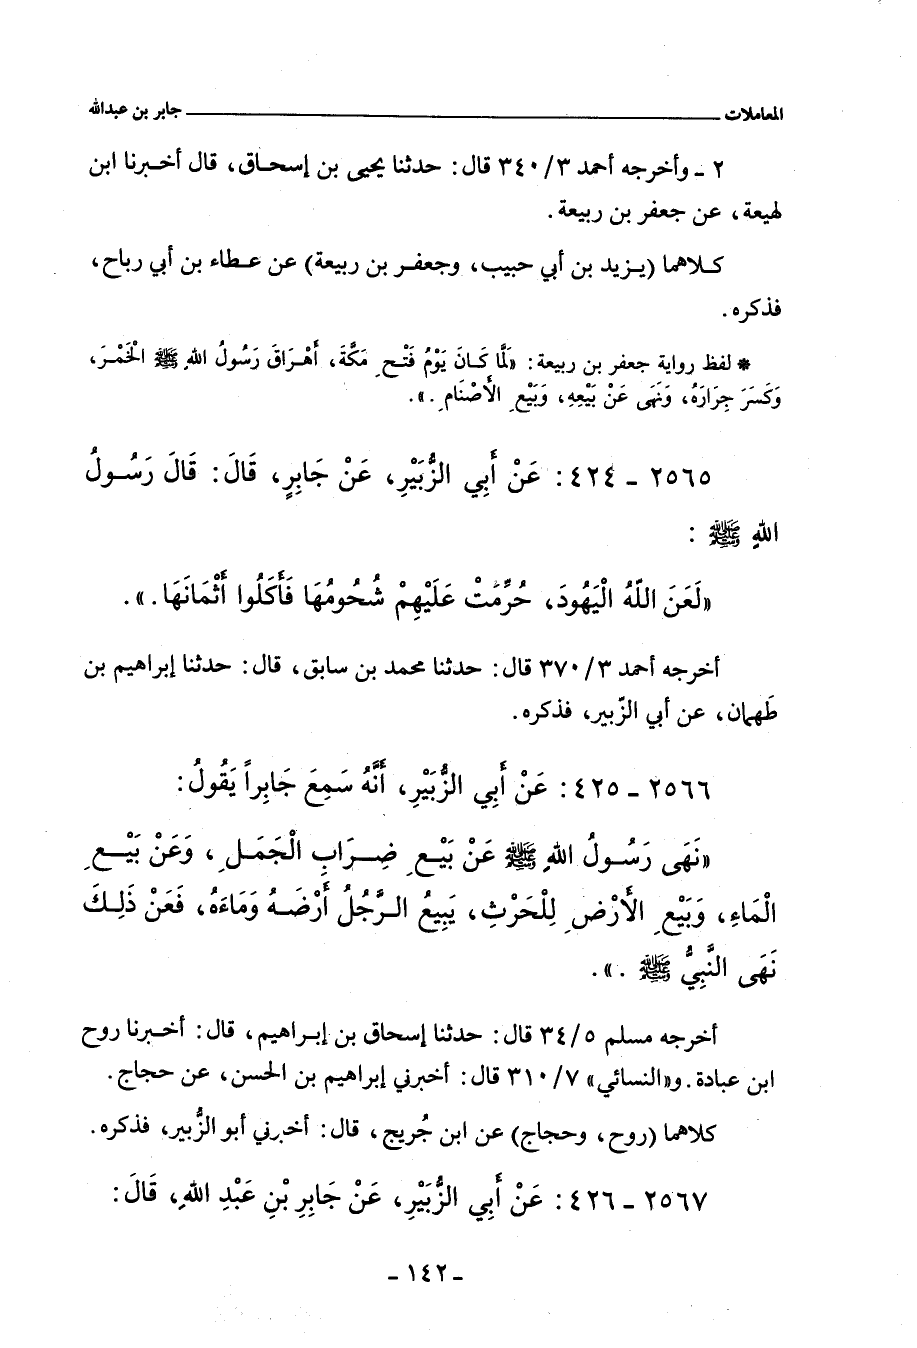 المعاملات ــــــــــــــــــ جابر بن عبدالله
٢ ـ وأخرجه أحمد ٣/ ٣٤٠ قال: حدثنا يحيى بن إسحاق، قال أخبرنا ابن
لهيعة، عن جعفر بن ربيعة.
كلاهما (يزيد بن أبي حبيب، وجعفر بن ربيعة) عن عطاء بن أبي رباح،
فذكره.
* لفظ رواية جعفر بن ربيعة: «لَمَّا كَانَ يَوْمُ فَتْحِ مَكَّةَ، أَهْرَاقَ رَسُولُ اللهِ ﷺ الْخَمْرَ،
وَكَسَرَ جِرَارَهُ، وَنَهَى عَنْ بَيْعِهِ، وَبَيْعِ الأَصْنَامِ.».
٢٥٦٥ ـ ٤٢٤: عَنْ أَبِي الزُّبَيْرِ، عَنْ جَابِرٍ، قَالَ: قَالَ رَسُولُ
اللهِ ﷺ :
«لَعَنَ اللّهُ الْيَهُودَ، حُرِّمَتْ عَلَيْهِمْ شُحُومُهَا فَأَكَلُوا أَثْمَانَهَا.».
أخرجه أحمد ٣/ ٣٧٠ قال: حدثنا محمد بن سابق، قال: حدثنا إبراهيم بن
طَهمان، عن أبي الزّبير، فذكره.
٢٥٦٦ ـ ٤٢٥: عَنْ أَبِي الزُّبَيْرِ، أَنَّهُ سَمِعَ جَابِراً يَقُولُ:
«نَهَى رَسُولُ اللهِ ﷺ عَنْ بَيْعِ ضِرَابِ الْجَمَلِ، وَعَنْ بَيْعِ
الْمَاءِ، وَبَيْعِ الأَرْضِ لِلْحَرْثِ، يَبِيعُ الرَّجُلُ أَرْضَهُ وَمَاءَهُ، فَعَنْ ذَلِكَ
نَهَى النَّبِيُّ ﷺ .».
أخرجه مسلم ٥/ ٣٤ قال: حدثنا إسحاق بن إبراهيم، قال: أخبرنا روح
ابن عبادة. و«النسائي» ٧/ ٣١٠ قال: أخبرني إبراهيم بن الحسن، عن حجاج.
كلاهما (روح، وحجاج) عن ابن جُريج، قال: أخبرني أبو الزُّبير، فذكره.
٢٥٦٧ ـ ٤٢٦: عَنْ أَبِي الزُّبَيْرِ، عَنْ جَابِرِ بْنِ عَبْدِ اللهِ، قَالَ:
ـ ١٤٢ ـ